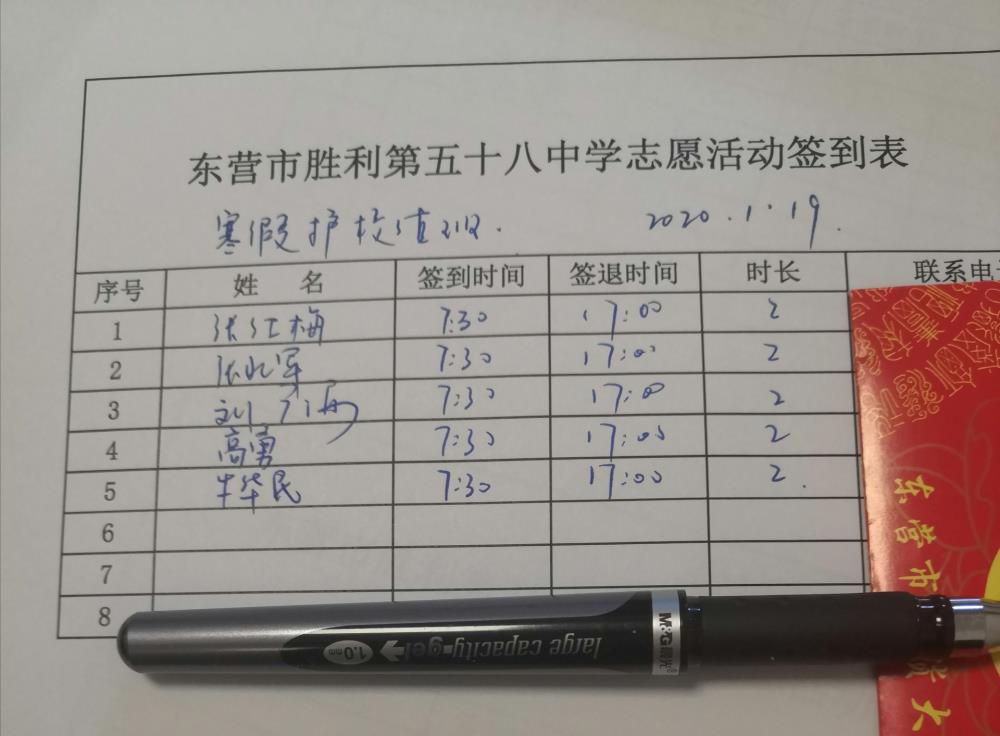 东营市胜利第五十八中学志愿活动签到表
寒假护校值班. 2020.1.19.
序号 姓 名 签到时间 签退时间 时长 联系电
1 张红梅 7:30 17:00 2
2 张永军 7:30 17:00 2
3 刘 7:30 17:00 2
4 高勇 7:30 17:00 2
5 牛华民 7:30 17:00 2.
6
7
8
large capacity gel
1.0mm
M&G 晨光
东营市